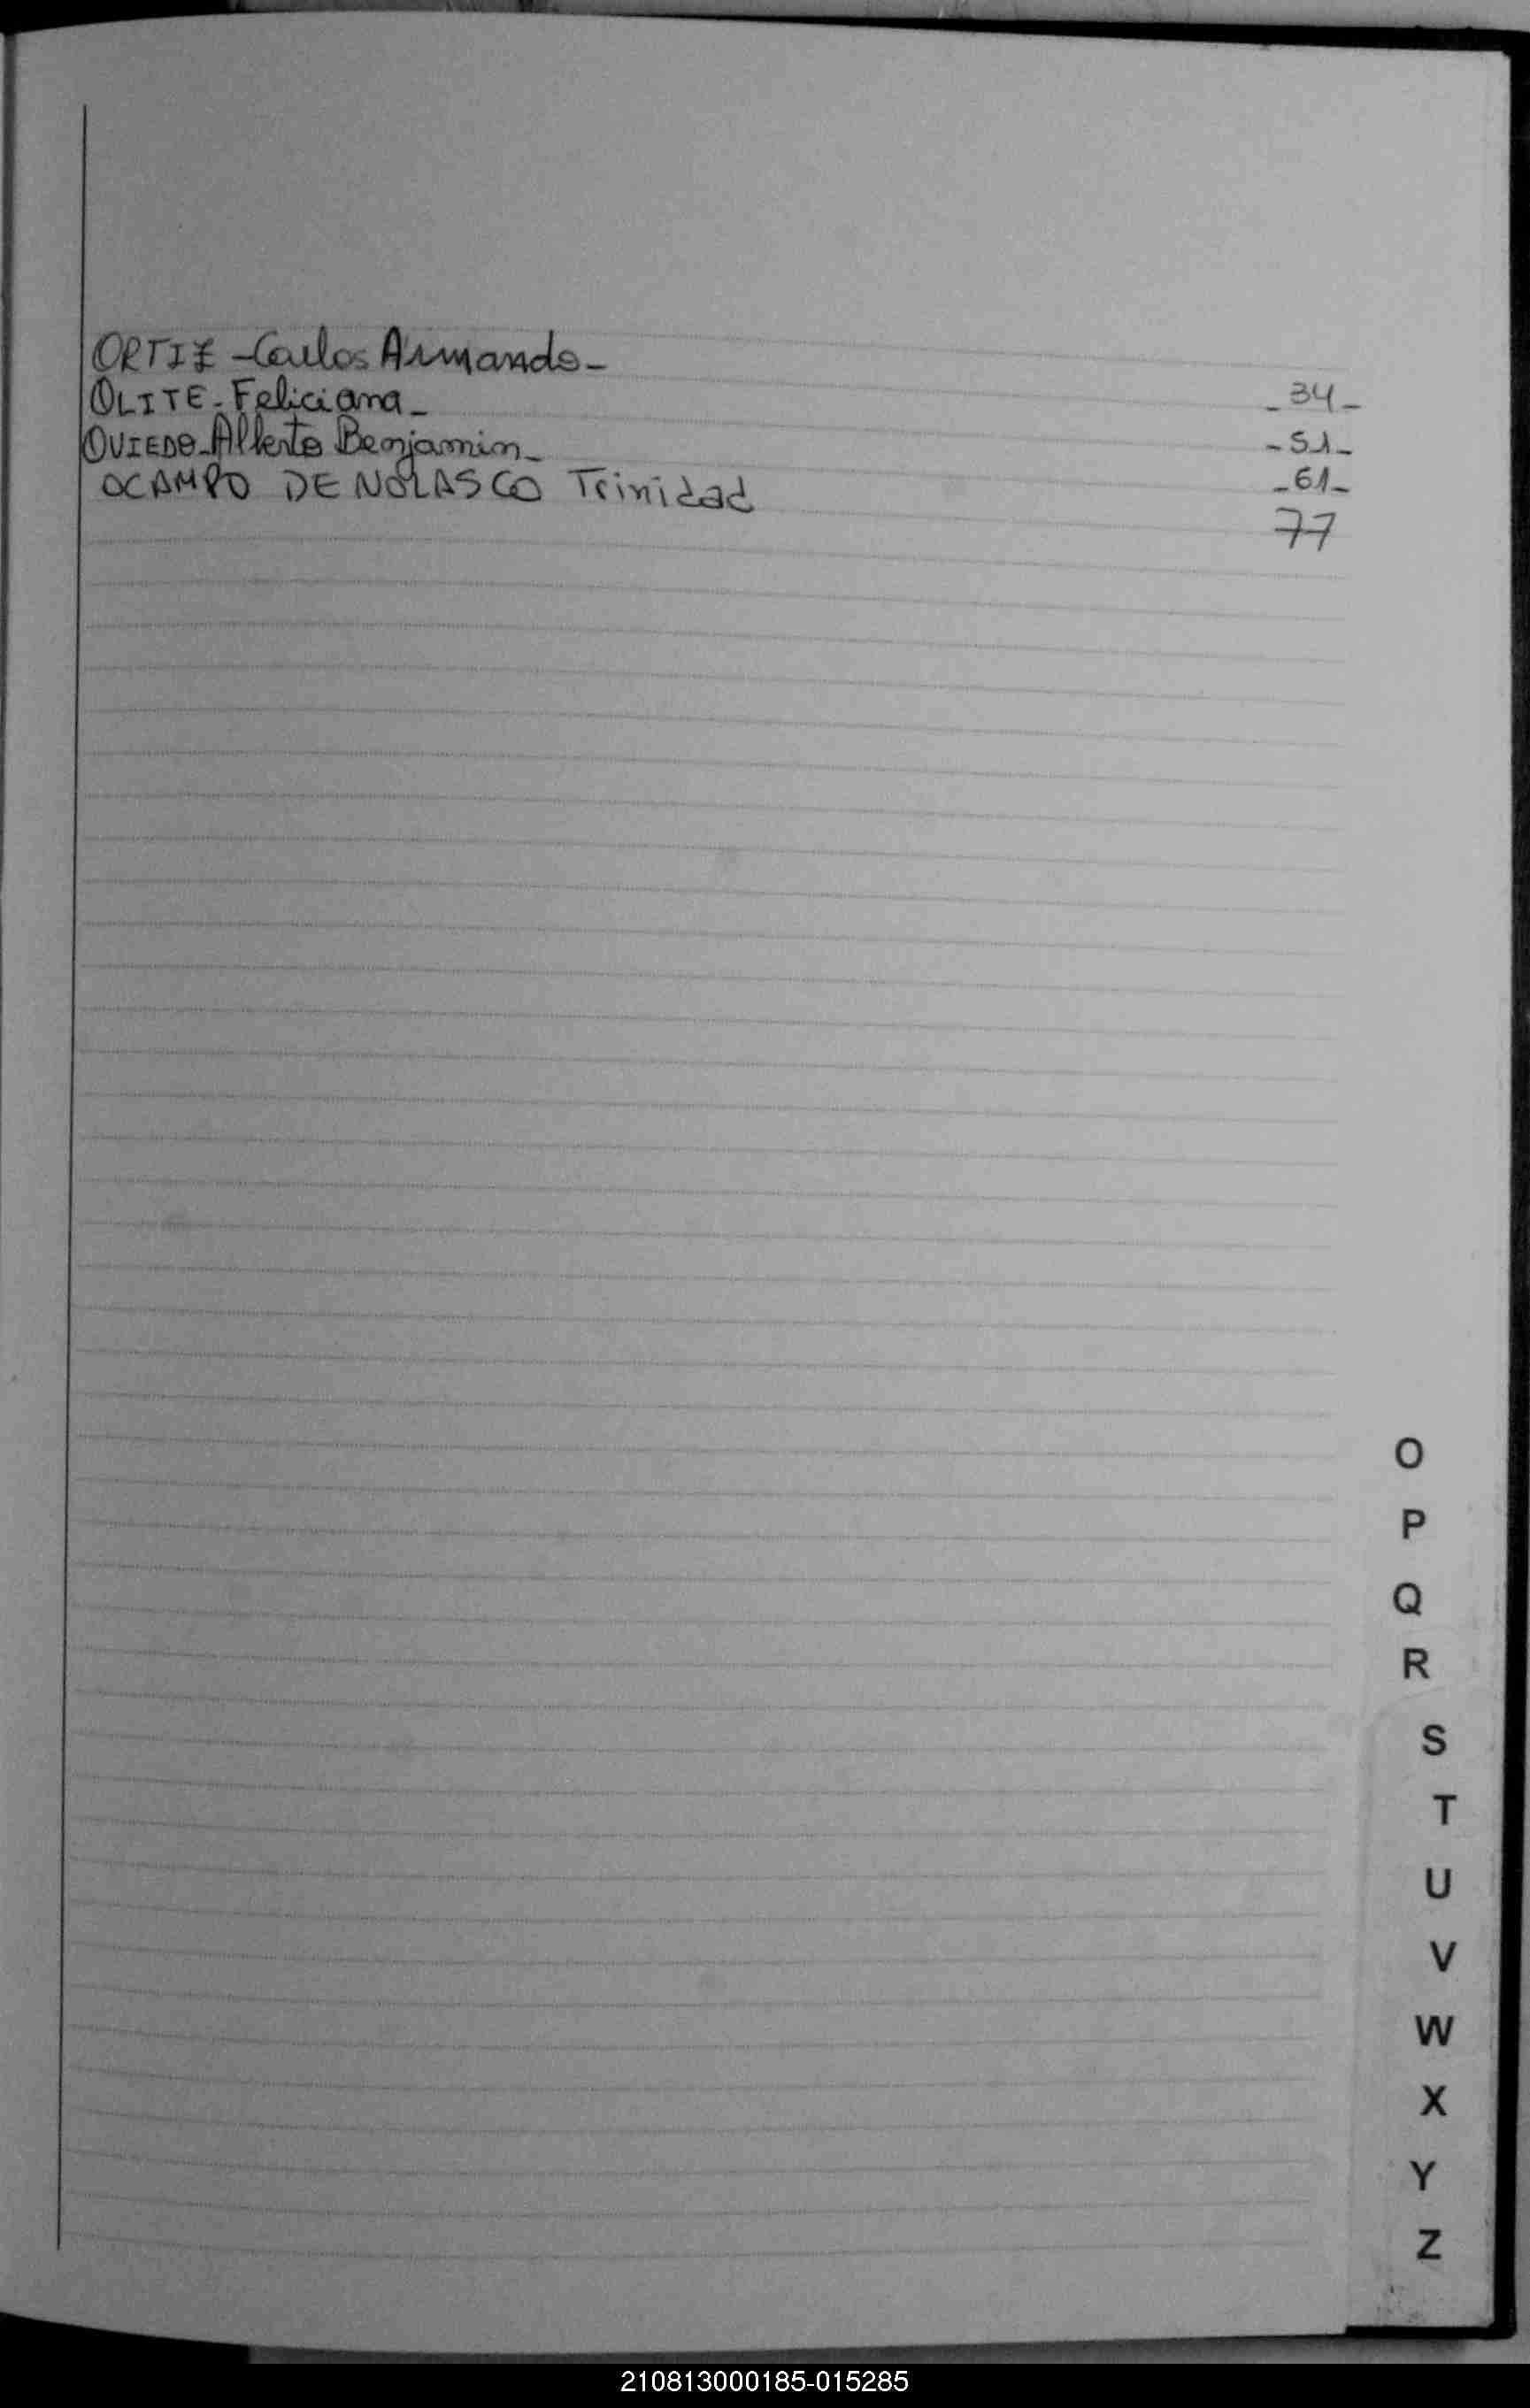 ORTIZ - Carlos Armando - _ 34 _
OLITE - Feliciana _ - 51 _
OVIEDO - Alberto Benjamin _ _ 61 _
OCAMPO DE NOLASCO Trinidad 77
O
P
Q
R
S
T
U
V
W
X
Y
Z
210813000185-015285